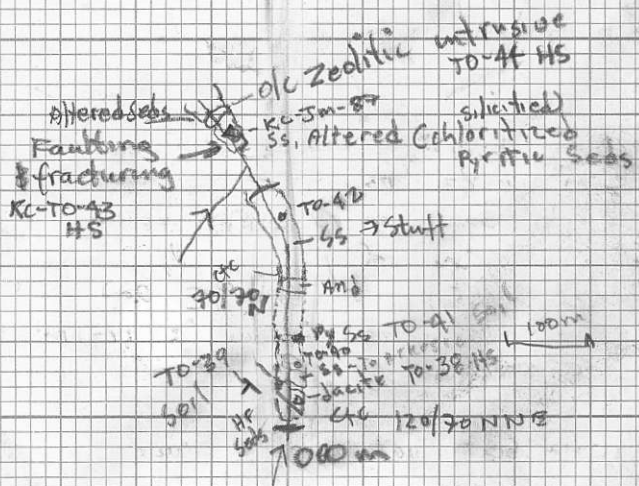 o/c Zeolitic intrusive
TO-44 HS
Altered Seds
KC-Jm-87
silicified
SS, Altered (chloritized
Pyritic Seds
Faulting
& fracturing
KC-TO-43
HS
TO-42
SS → Stuff
ctc
70/70N
And
Py SS
TO-41 Soil
100m
TO-40
SS-
TO-38 HS
TO-39
Soil
dacite
Ctc
120/70 NNE
HF
Seds
000 m